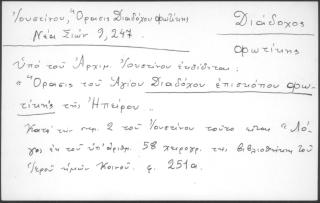 Ἰουστίνου, "Ὅρασις Διαδόχου Φωτικῆς
Νέα Σιών 9, 247.
Διάδοχος
Φωτικῆς
Ὑπὸ τοῦ Ἀρχιμ. Ἰουστίνου ἐκδίδεται:
"Ὅρασις τοῦ Ἁγίου Διαδόχου ἐπισκόπου Φω-
τικῆς τῆς Ἠπείρου..
Κατὰ τὴν σημ. 2 τοῦ Ἰουστίνου τοῦτο εἶναι "Λό-
γος ἐκ τοῦ ὑπ' ἀριθμ. 58 χειρογρ. τῆς βιβλιοθήκης τοῦ
Ἱεροῦ ἡμῶν Κοινοῦ. φ. 251α.